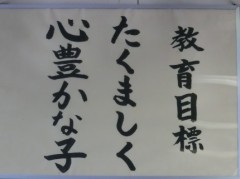 教育目標
たくましく
心豊かな子